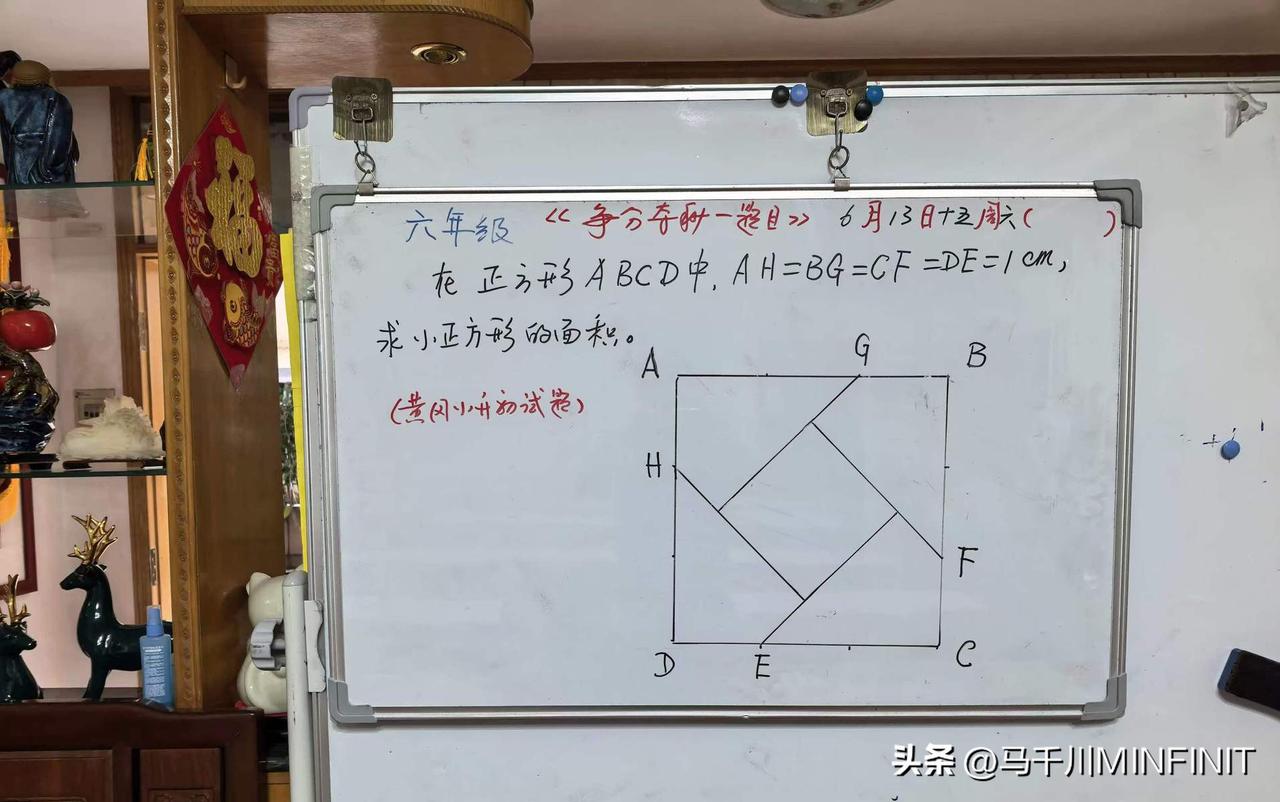 福
六年级 《争分夺秒一题目》 6月13日十五周六( )
在正方形ABCD中,AH=BG=CF=DE=1cm,
求小正方形的面积。
(黄冈小升初试题)
A G B
H
F
D E C
头条 @马千川MINFINIT